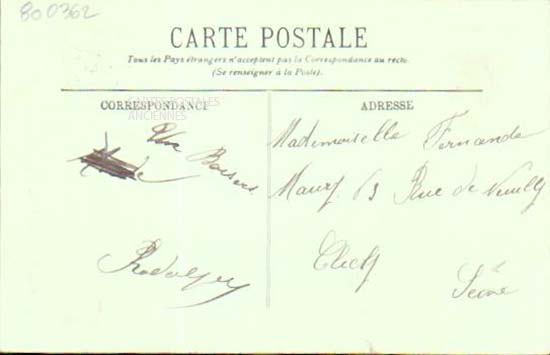 800362
CARTE POSTALE
Tous les Pays étrangers n'acceptent pas la Correspondance au recto.
(Se renseigner à la Poste).
CORRESPONDANCE
ADRESSE
CARTES POSTALES
ANCIENNES
Baisers
Rodolphe
Mademoiselle Fernande
63 Rue de Neuilly
Clichy
Seine